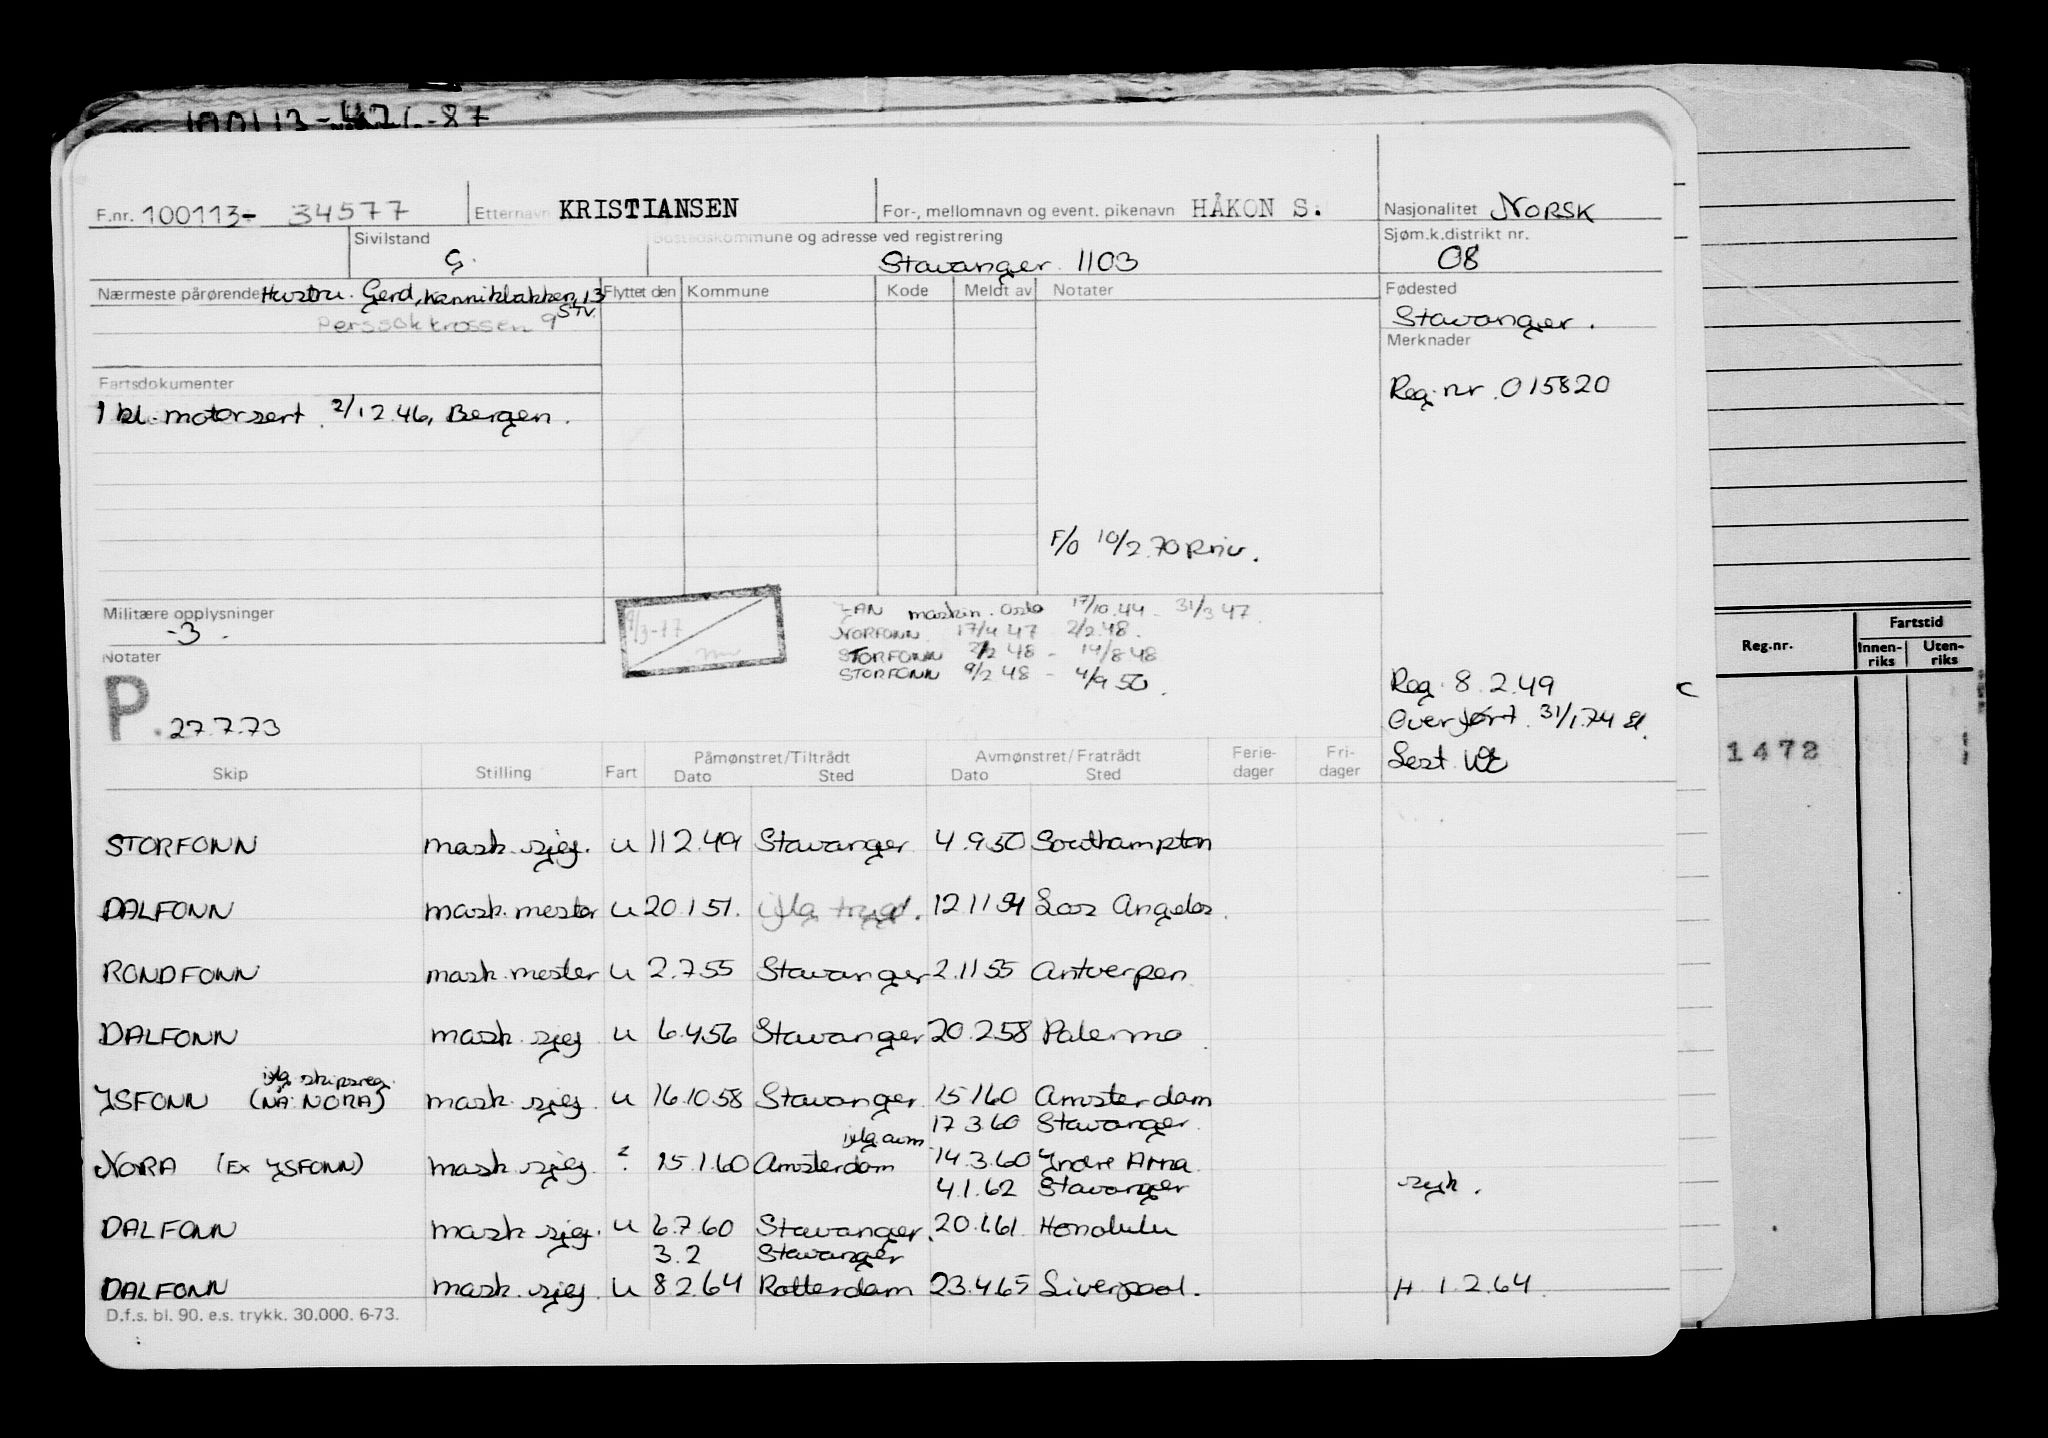 F.nr. 100113- 34577 Etternavn KRISTIANSEN For-, mellomnavn og event. pikenavn HÅKON S. Nasjonalitet NORSK
Sivilstand G. Bostedskommune og adresse ved registrering Stavanger 1103 Sjøm.k.distrikt nr. 08
Nærmeste pårørende Hustru. Gerd, 13 Stv. Flyttet den Kommune Kode Meldt av Notater Fødested
9 Stavanger.
Merknader
Fartsdokumenter Reg.nr. 015820
1 kl. motorsert. 2/12.46, Bergen.
F/O 10/2.70
Militære opplysninger maskin. Oslo 17/10.44 - 31/3 47.
-3. NORFONN 17/4 47 2/2.48.
Notater STORFONN 2/2 48 - 14/8 48
STORFONN 9/2 48 - 4/9 50.
Reg. 8.2.49
P. 27.7.73 Overført. 31/1.74
Påmønstret/Tiltrådt Avmønstret/Fratrådt Ferie- Fri-
Skip Stilling Fart Dato Sted Dato Sted dager dager
STORFONN mask.sjef. U 11 2.49 Stavanger 4.9 50 Southampton
DALFONN mask.mester U 20.1 51. 12.11 54 Los Angeles.
RONDFONN mask.mester U 2.7 55 Stavanger 2.11 55 Antverpen
DALFONN mask sjef U 6.4 56 Stavanger 20.2 58 Palermo
iflg. skipsreg.
YSFONN (NÅ: NORA) mask.sjef U 16.10.58 Stavanger 15 1 60 Amsterdam
17 3.60 Stavanger
iflg avm
NORA (EX YSFONN) mask sjef ? 15.1.60 Amsterdam 14.3.60 Yndre Arna
4.1.62 Stavanger syk.
DALFONN mask sjef. U 6.7.60 Stavanger. 20.1.61 Honolulu
3.2 Stavanger
DALFONN mask.sjef U 8 2.64 Rotterdam 23.4 65 Liverpool. H 1.2.64.
D.f.s. bl. 90. e.s. trykk. 30.000. 6-73.
Reg.nr. Fartstid
Innen-riks Uten-riks
1472